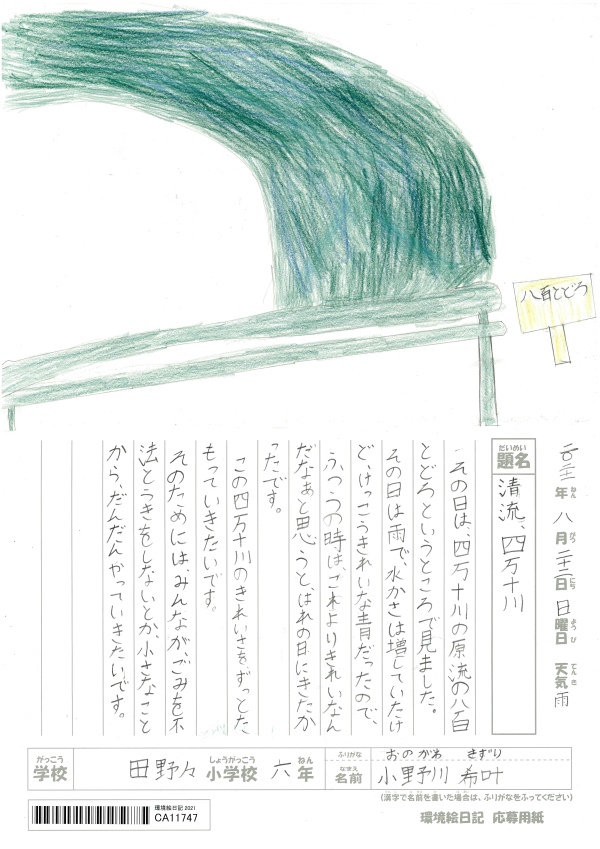 八百とどろ
二〇二一年八月二十二日日曜日 天気雨
ねん がつ にち ようび てんき
だいめい
題名 清流、四万十川
その日は、四万十川の原流の八百
とどろというところで見ました。
その日は雨で、水かさは増していたけ
ど、けっこうきれいな青だったので、
ふつうの時は、これよりきれいなん
だなぁと思うと、ばれの日にきたか
ったです。
この四万十川のきれいさを、ずっとた
もっていきたいです。
そのためには、みんなが、ごみを不
法とうきをしないとか、小さなこと
から、だんだんやっていきたいです。
がっこう しょうがっこう ねん
学校 田野々小学校 六年
ふりがな おのがわ きずり
なまえ
名前 小野川 希叶
(漢字で名前を書いた場合は、ふりがなをふってください)
環境絵日記 2021
CA11747
環境絵日記 応募用紙